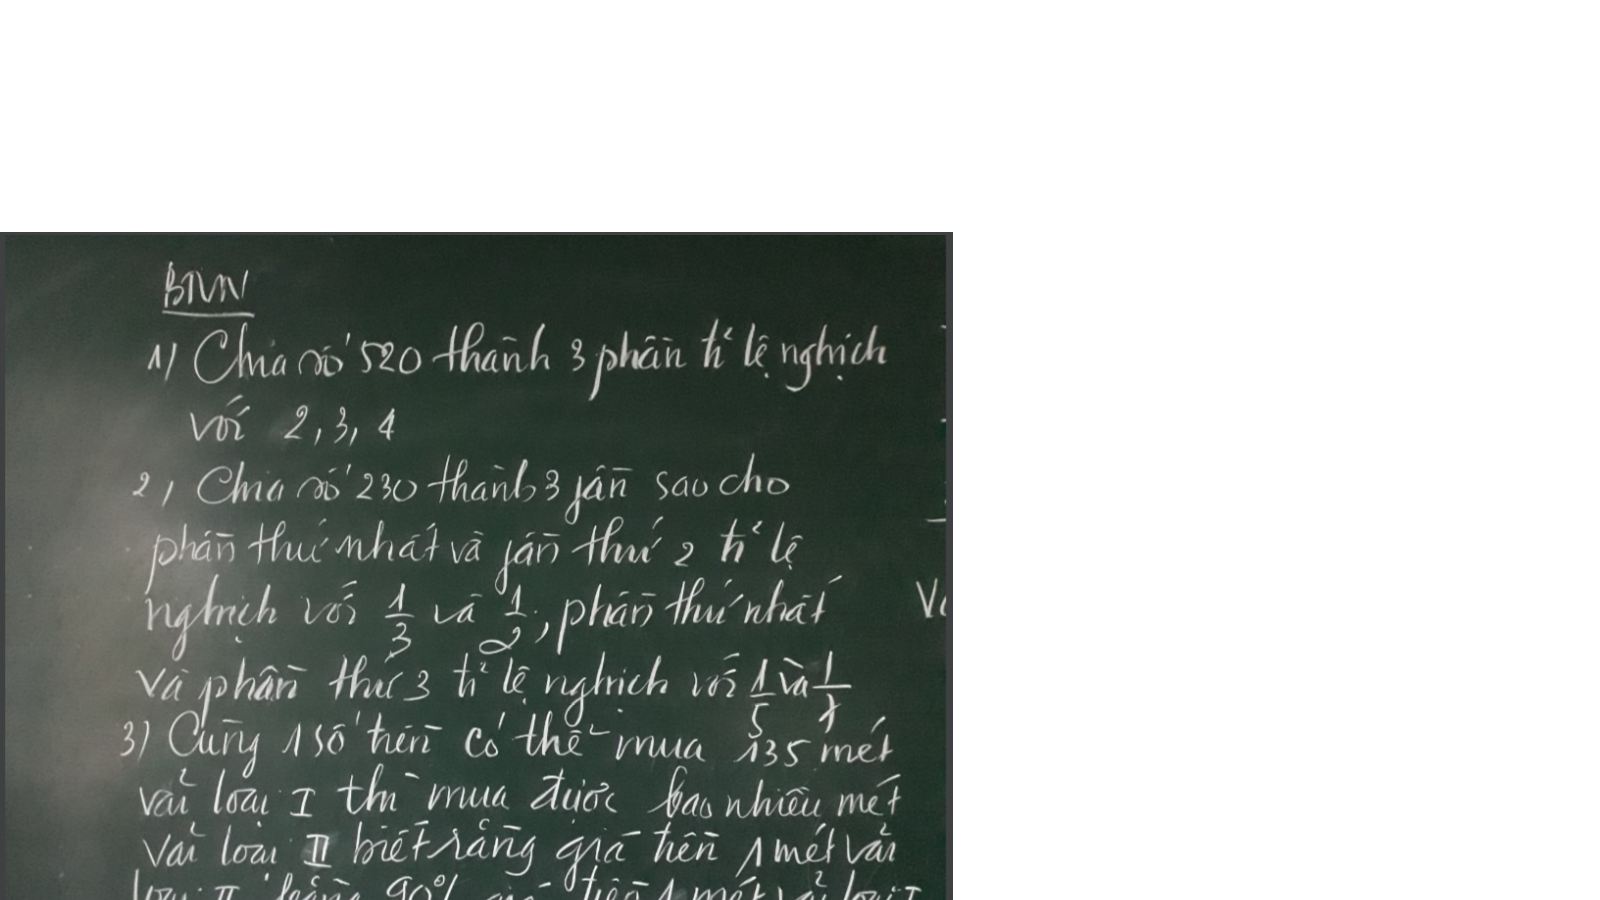 BTVN
1) Chia số 520 thành 3 phần tỉ lệ nghịch
với 2, 3, 4
2, Chia số 230 thành 3 fần sao cho
phần thứ nhất và fần thứ 2 tỉ lệ
nghịch với 1/3 và 1/2, phần thứ nhất
và phần thứ 3 tỉ lệ nghịch với 1/5 và 1/7
3) Cùng 1 số tiền có thể mua 135 mét
vải loại I thì mua được bao nhiêu mét
vải loại II biết rằng giá tiền 1 mét vải
loại II bằng 90% giá tiền 1 mét vải loại I